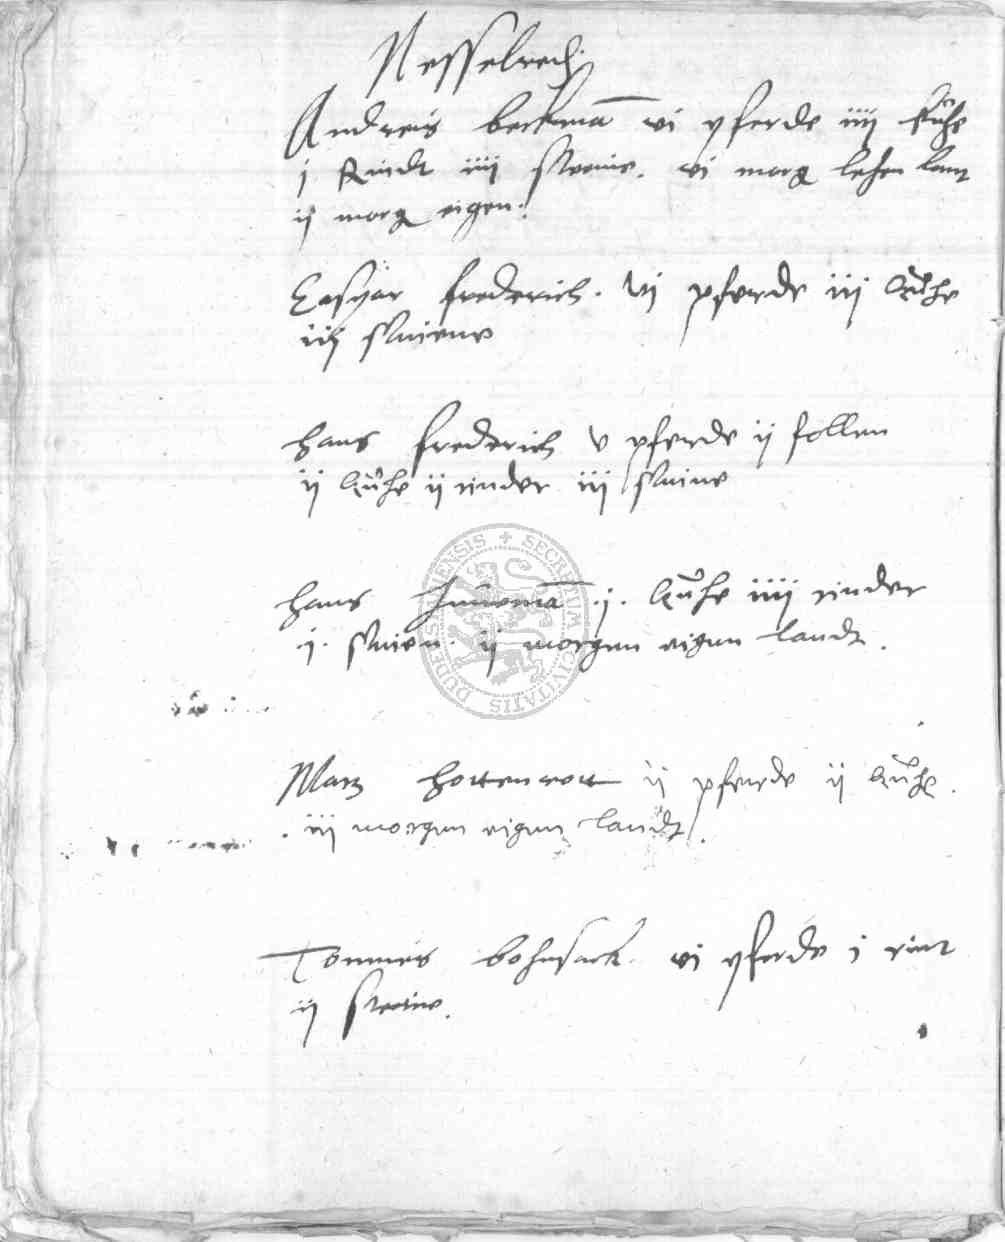 Nesselredh
Andreis beckmā vi pferde iiij kuͤhe
j Rindt iiij sweine. vi morg lehen lant
ij morg eigen.
Caspar frederich. vj pferde iij kuͤhe
iiij swiene
hans frederich v pferde ij follen
ij kuͤhe ij rinder iij swine
hans .j. kuͤhe iiij rinder
.j. swien. ij morgen eigen landt.
Martz hottenrott ij pferde ij kuͤhe.
. iij morgen eigen landt.
Tonnies bohnsack. vi pferde i rint
ij sweine.
SECRETUM CIVITATIS DUDERSTADENSIS